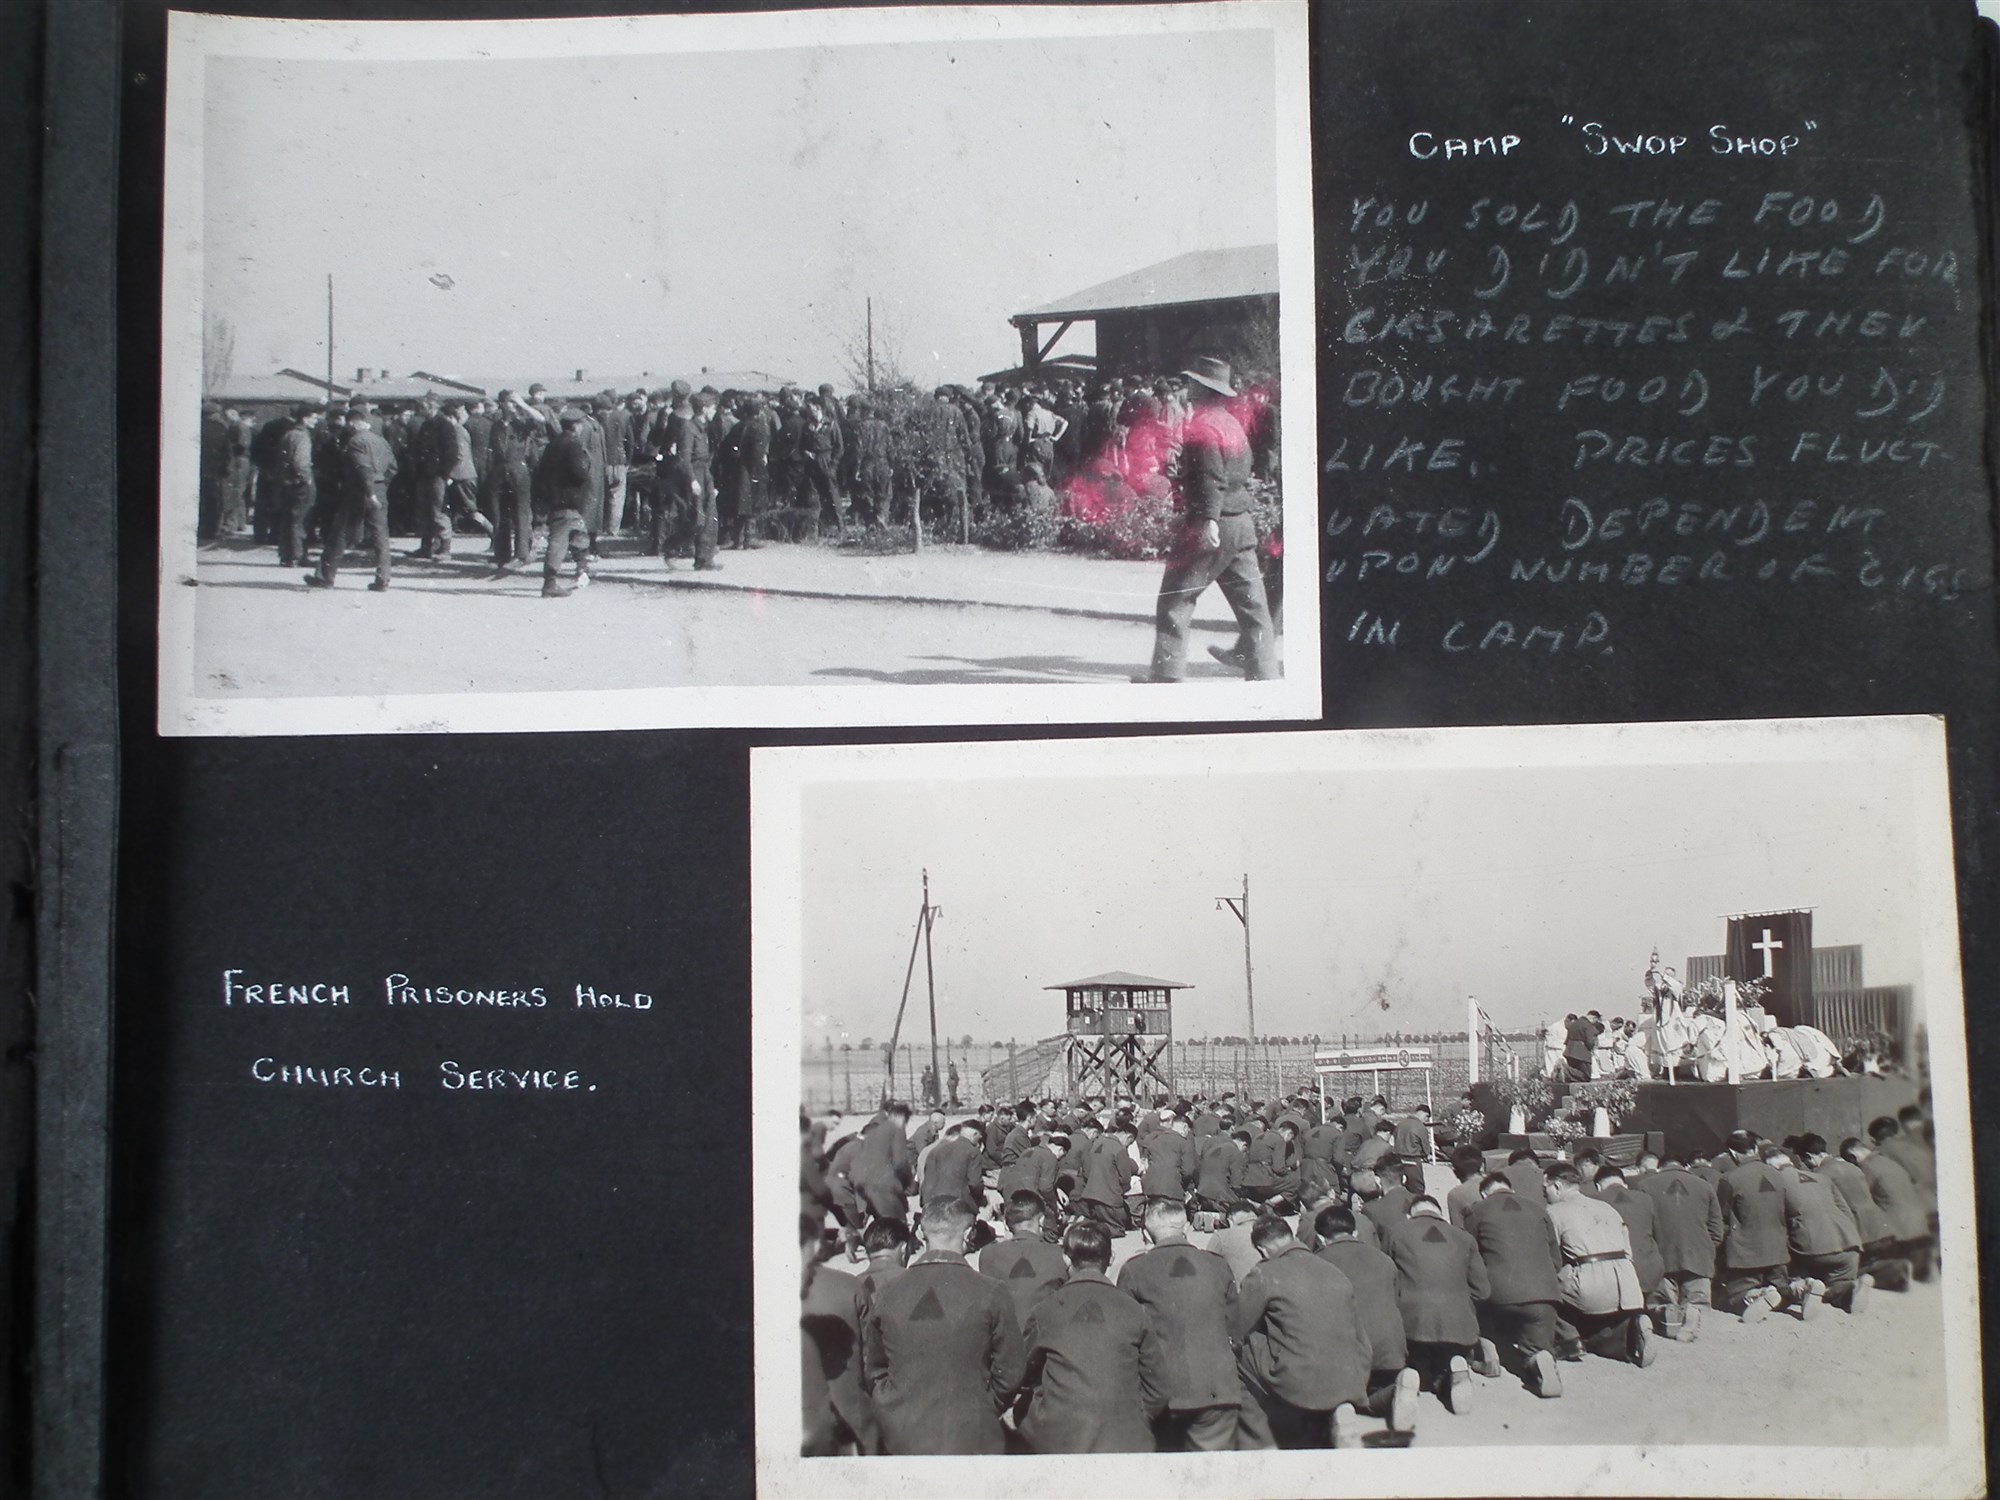 CAMP "SWOP SHOP"
YOU SOLD THE FOOD
YOU DIDN'T LIKE FOR
CIGSARETTES & THEN
BOUGHT FOOD YOU DID
LIKE. PRICES FLUCT-
UATED DEPENDENT
UPON NUMBER OF CIGS
IN CAMP.
FRENCH PRISONERS HOLD
CHURCH SERVICE.